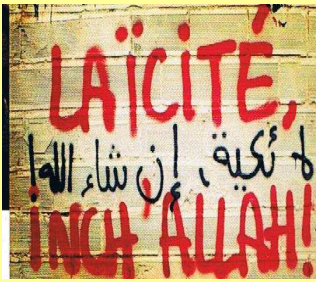 LAÏCITÉ,
لا ئكية، إن شاء الله!
INCH'ALLAH!